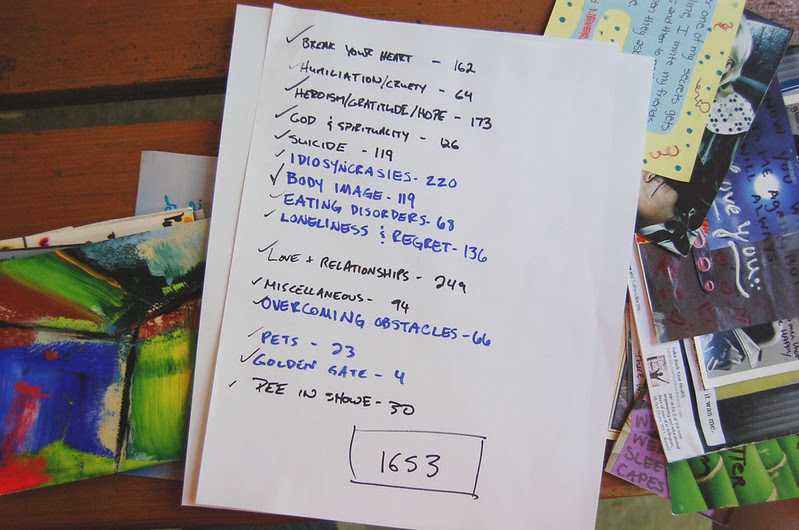 ✓ BREAK YOUR HEART - 162
✓ HUMILIATION/CRUELTY - 64
✓ HEROISM/GRATITUDE/HOPE - 173
✓ GOD & SPIRITUALITY - 126
✓ SUICIDE - 119
✓ IDIOSYNCRASIES - 220
✓ BODY IMAGE - 119
✓ EATING DISORDERS - 68
✓ LONELINESS & REGRET - 136
✓ LOVE + RELATIONSHIPS - 249
✓ MISCELLANEOUS - 94
✓ OVERCOMING OBSTACLES - 66
✓ PETS - 23
✓ GOLDEN GATE - 4
✓ PEE IN SHOWE - 30
1653
one of my secrets gets
I invite my friends
love you:
ALWAYS
it was me.
SLEE
CAPES